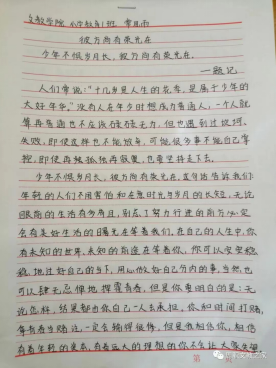 文教学院 小学教育1班
彼方尚有荣光在
少年不惧岁月长，彼方尚有荣光在
——题记
人们常说："十几岁是人生的花季，是属于少年的
大好年华。"没有人在年少时想成为普通人，一个人就
算再普通也不应该碌碌无为，但也遇到过坎坷、
失败，即使这样也不能放弃，可能很多事不能自己掌
控，即使再孤独再寂寞，也要坚持走下去。
少年不惧岁月长，彼方尚有荣光在，这句话告诉我们：
年轻的人们不用害怕和在意时光与岁月的长短，无论
眼前的生活有多苦，别忘了努力行进的前方必定
会有美好生活的曙光在等着我们。在自己的人生中，你
有未知的世界，未知的前途在等着你，你可以安安稳稳
地过好自己的当下，用心做好自己分内的事，当然，也
可以肆无忌惮地挥霍青春，但是你要明白的是：无
论怎样，结果都由你自己一人去承担，你和时间打赌，
每有着生赌，一定会输得很惨，但是我相信你，相信
有着年轻的资本，有着远大的理想的你不会让大家失望
第 页